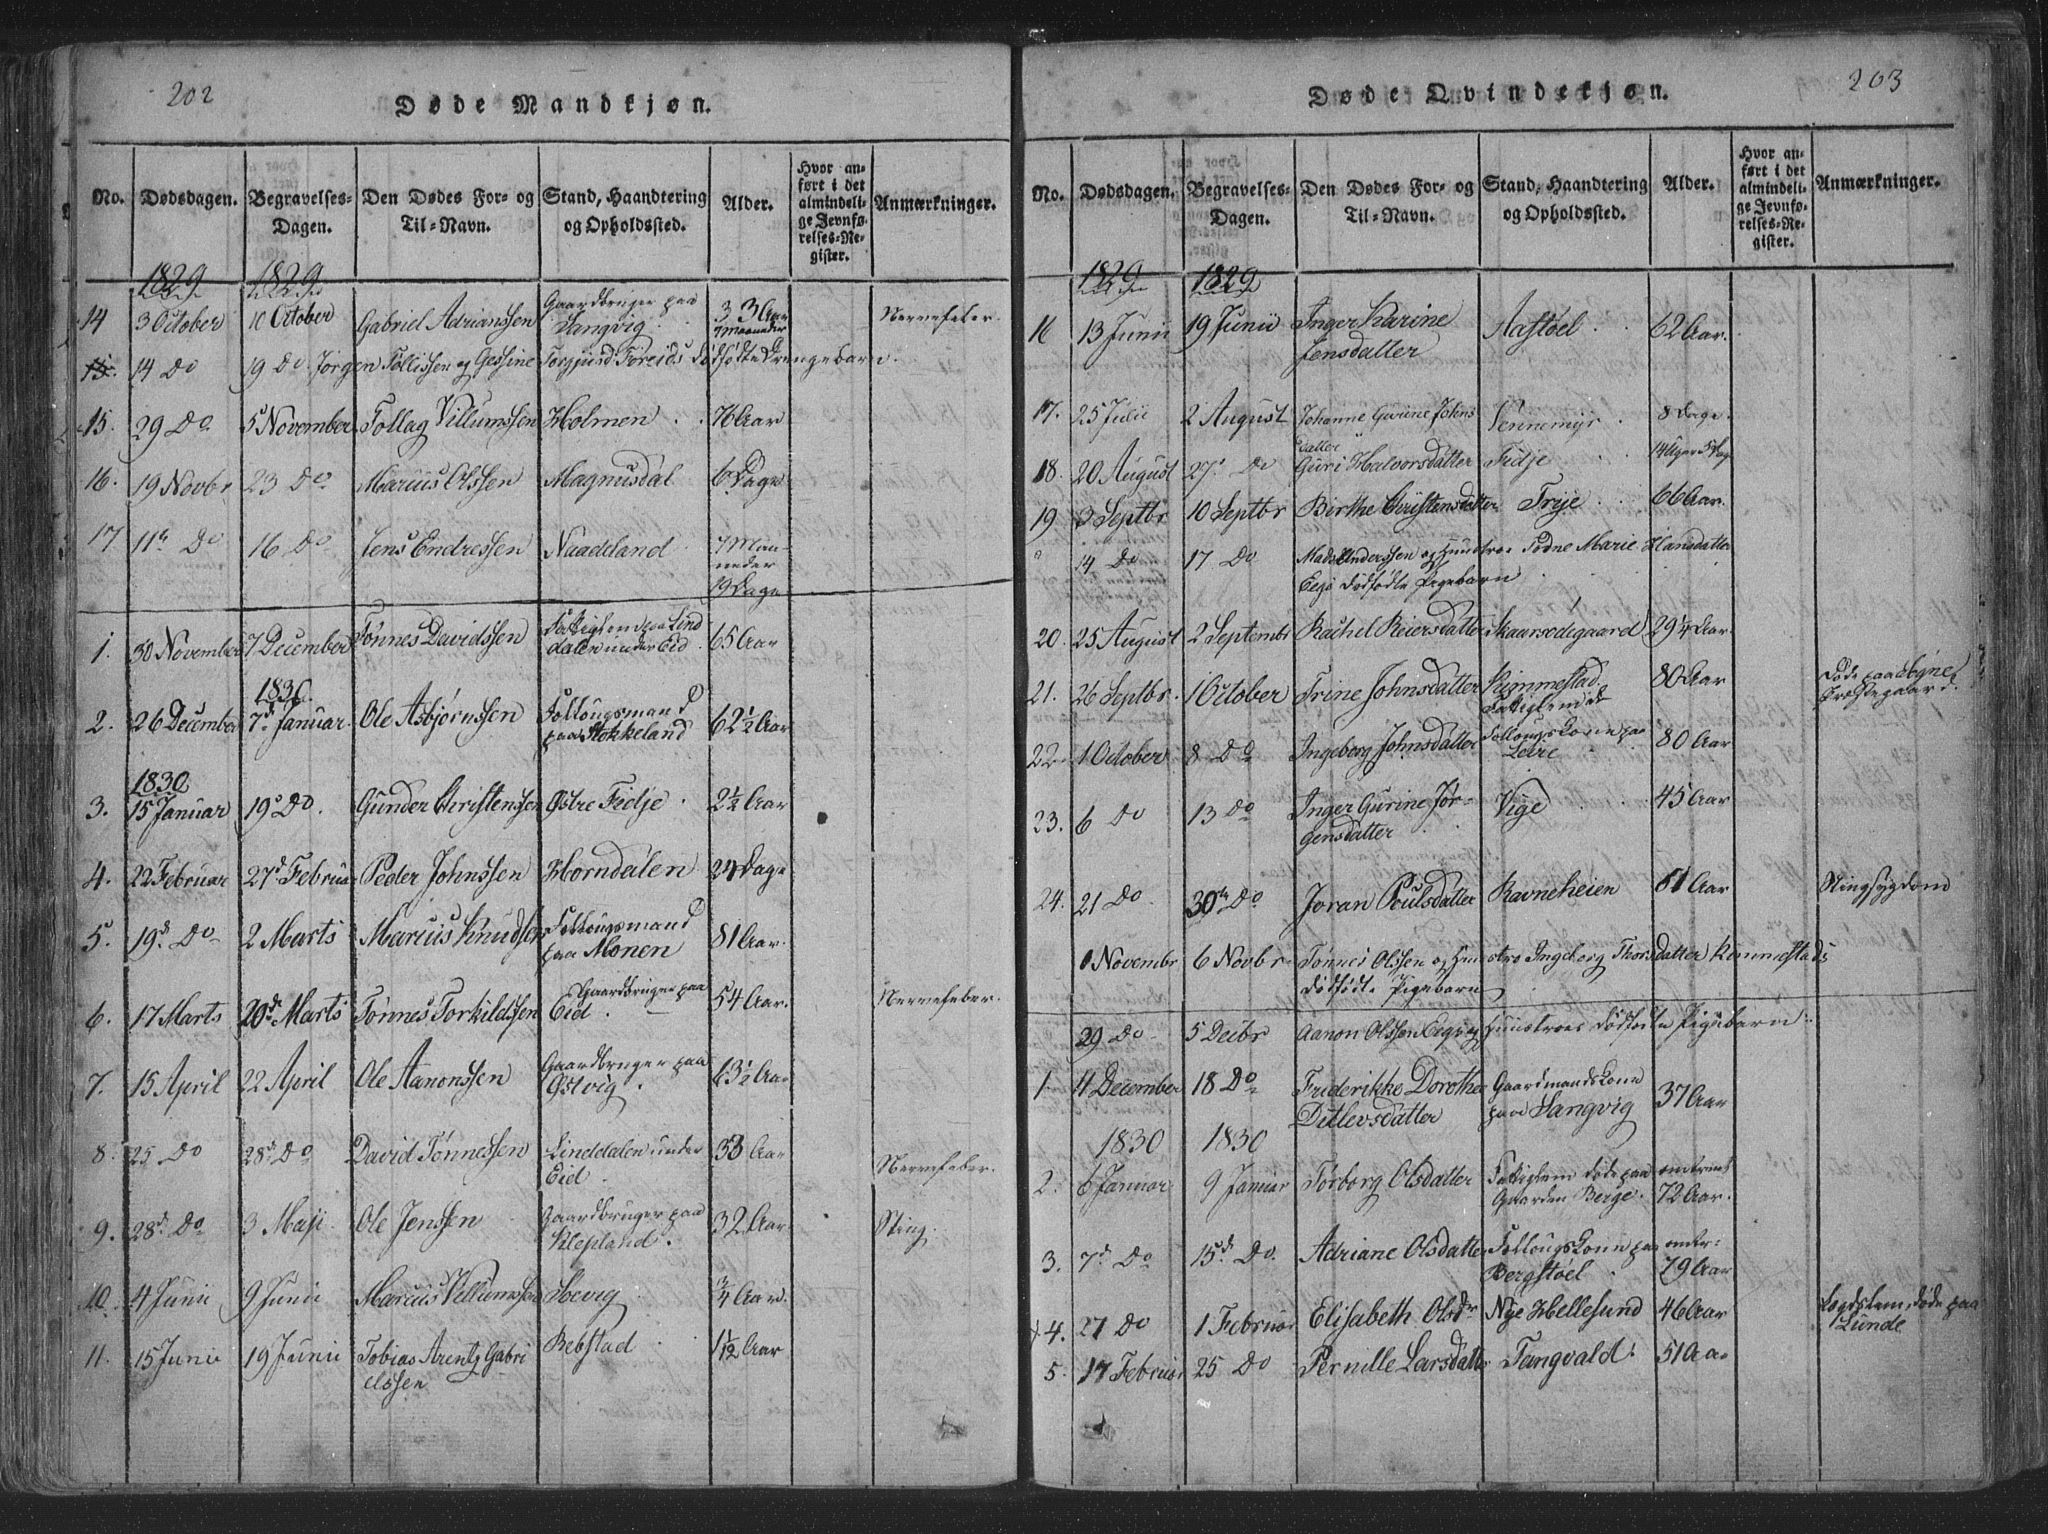 202
Døde Mandkjøn.
No. Dødsdagen. Begravelses-Dagen. Den Dødes For- og Til-Navn. Stand, Haandtering og Opholdssted. Alder. Hvor anført i det almindelige Jevnførelses-Register. Anmærkninger.
1829 1829
14 3 October 10 October Gabriel Adrianssen Gaardbruger paa Langvig 33 Aar 7 Maaneder Nervefeber
14 Do 19 Do Jørgen Tollissen og Gessine Torgjusd Foreids dødfødte Drengebarn.
15. 29 Do 5 November Tollag Villumssen Holmen 76 Aar
16. 19 Novbr 23 Do Marius Olssen Magnusdal 6 Dage
17 11te Do 16 Do Jens Endressen Naadeland 7 Maaneder 19 Dage
1. 30 November 7 December Tønnes Davidssen Fattiglem paa Lind
dalen under Eid 65 Aar
1830
2. 26 December 7d Januar Ole Asbjørnssen Follougsmand
paa Stokkeland 62½ Aar
1830
3. 15 Januar 19 Do Gunder Christenssen Østre Fidje 2½ Aar
4. 22 Februar 27d Februar Peder Johnssen Horndalen 24 Dage
5. 19d Do 2 Marts Marcus Knudsen Follougsmand
paa Monen 81 Aar.
6. 17 Marts 20d Marts Tønnes Torkildssen Gaardbruger paa
Eid 54 Aar. Nervefeber.
7. 15 April 22 April Ole Aanonssen Gaardbruger paa
Østvig 63½ Aar
8. 25 Do 28d Do David Tønnessen Linddalen under
Eid 33 Aar Nervefeber.
9. 28d Do 3 Maji Ole Jenssen Gaardbruger paa
Klepland 32 Aar Sting.
10. 4 Junii 9 Junii Marcus Villumssen Høevig ¾ Aar.
11. 15 Junii 19 Junii Tobias Arentz Gabri
elssen Rebstad 1½ Aar
203
Døde Qvindekjøn.
No. Dødsdagen. Begravelses-Dagen. Den Dødes For- og Til-Navn. Stand, Haandtering og Opholdssted. Alder. Hvor anført i det almindelige Jevnførelses-Register. Anmærkninger.
1829 1829
16 13 Junii 19 Junii Inger Karine
Jensdatter Aastøel 62 Aar.
17. 25 Julii 2 August Johanne Gurine Johns
datter Vennemyr 8 Dage
18. 20 August 27 Do Guri Halvorsdatter Fidje
19 3 Septbr 10 Septbr Birthe Christensdatter Trye 66 Aar.
14 Do 17 Do Mads Anderssen og Hustroe Todne Marie Hansdatter
Eegs dødfødte Pigebarn
20. 25 August 2 Septembr Rachel Reiersdatter Skaarsødegaard 29¼ Aar
21. 26 Septbr. 1 October Trine Johnsdatter Kimmestad
Fattiglem 80 Aar Døde paa Søgne
Præstegaard.
22. 1 October 8 Do Ingeborg Johnsdatter Follougskone paa
Leire 80 Aar
23. 6 Do 13 Do Inger Gurine Jør-
gensdatter Vige 45 Aar
24. 21 Do 30te Do Joran Poulsdatter Ravneheien 61 Aar Stingsygdom
1 Novembr 6 Novbr Tønnes Olssen og Hustro Ingeborg Thorsdatter Kimmestads
dødfødte Pigebarn
29 Do 5 Decbr Aanon Olssen Eegs og Hustroes dødfødte Pigebarn
1. 4 December 18 Do Friderikke Dorothea
Ditlevsdatter Gaardmandskone
paa Langvig 37 Aar
1830 1830
2. 6 Januar 9 Januar Torborg Olsdatter Fattiglem døde paa
Gaarden Berge omtrent
72 Aar.
3. 7d Do 15d Do Adriane Olsdatter Follougskone paa
Bergstøel omtr:
79 Aar
4. 27 Do 1 Februar Elisabeth Olsdr Nye Hellesund 46 Aar Lægdslem, døde paa
Lunde
5. 17 Februar 25 Do Pernille Larsdatter Tangvald 51 Aar